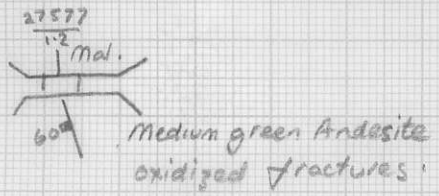 27577
1.2
Mal.
60°
Medium green Andesite
oxidized fractures.